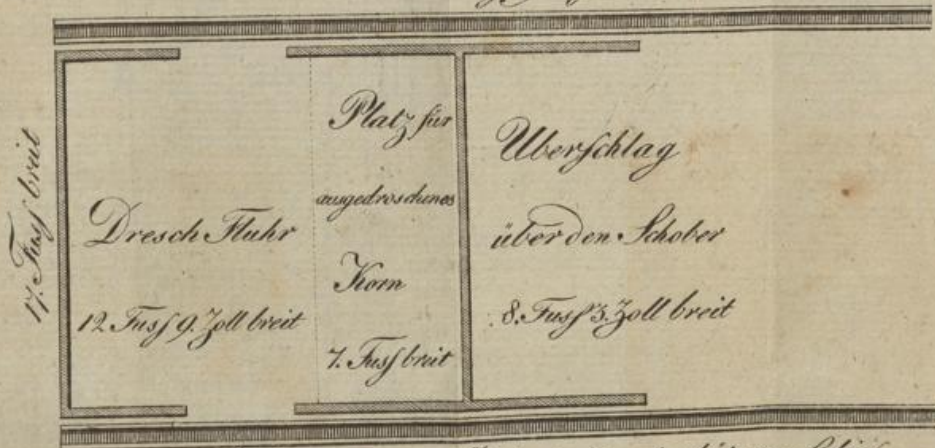 17. Fuss breit
Dresch Fluhr
12 Fuss 9. Zoll breit
Platz für
ausgedroschenes
Korn
7. Fuss breit
Uberschlag
über den Schober
8. Fuss 3. Zoll breit